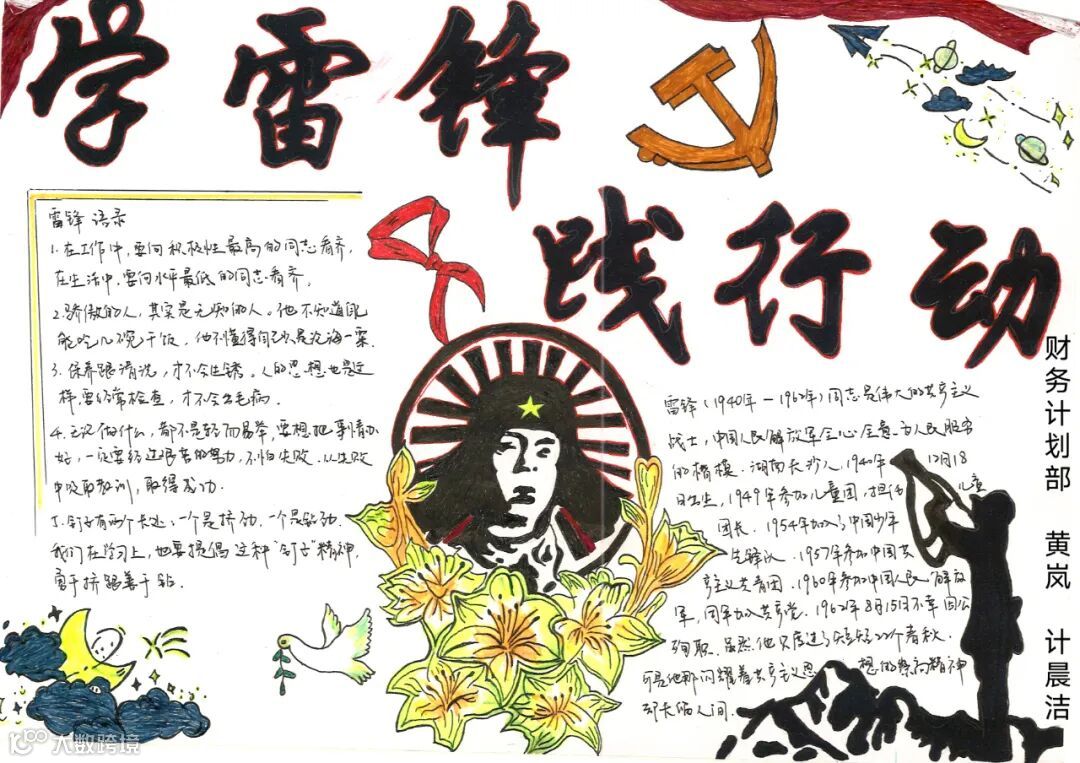 学雷锋
践行动
雷锋语录
1.在工作中,要向积极性最高的同志看齐,
在生活中,要向水平最低的同志看齐,
2.骄傲的人,其实是无知的人。他不知道自己
能吃几碗干饭,他不懂得自己只是沧海一粟.
3.保养跟清洗,才不会生锈。人的思想也是这
样,要经常检查,才不会出毛病.
4.无论做什么,都不是轻而易举,要想把事情办
好,一定要经过艰苦的努力,不怕失败.从失败
中吸取教训,取得成功.
5.钉子有两个长处:一个是挤劲,一个是钻劲.
我们在学习上,也要提倡这种"钉子"精神,
勇于挤跟善于钻.
雷锋(1940年-1962年)同志是伟大的共产主义
战士,中国人民解放军全心全意为人民服务
的楷模.湖南长沙人,1940年12月18
日出生,1949年参加儿童团,担任儿童
团长.1954年加入了中国少年
先锋队.1957年参加中国共
产主义共青团,1960年参加中国人民解放
军,同年加入共产党.1962年8月15日不幸因公
殉职.虽然他只度过了短短22个春秋.
可是他那闪耀着共产主义思想的崇高精神
却长留人间.
财务计划部 黄岚 计晨洁
大数跨境